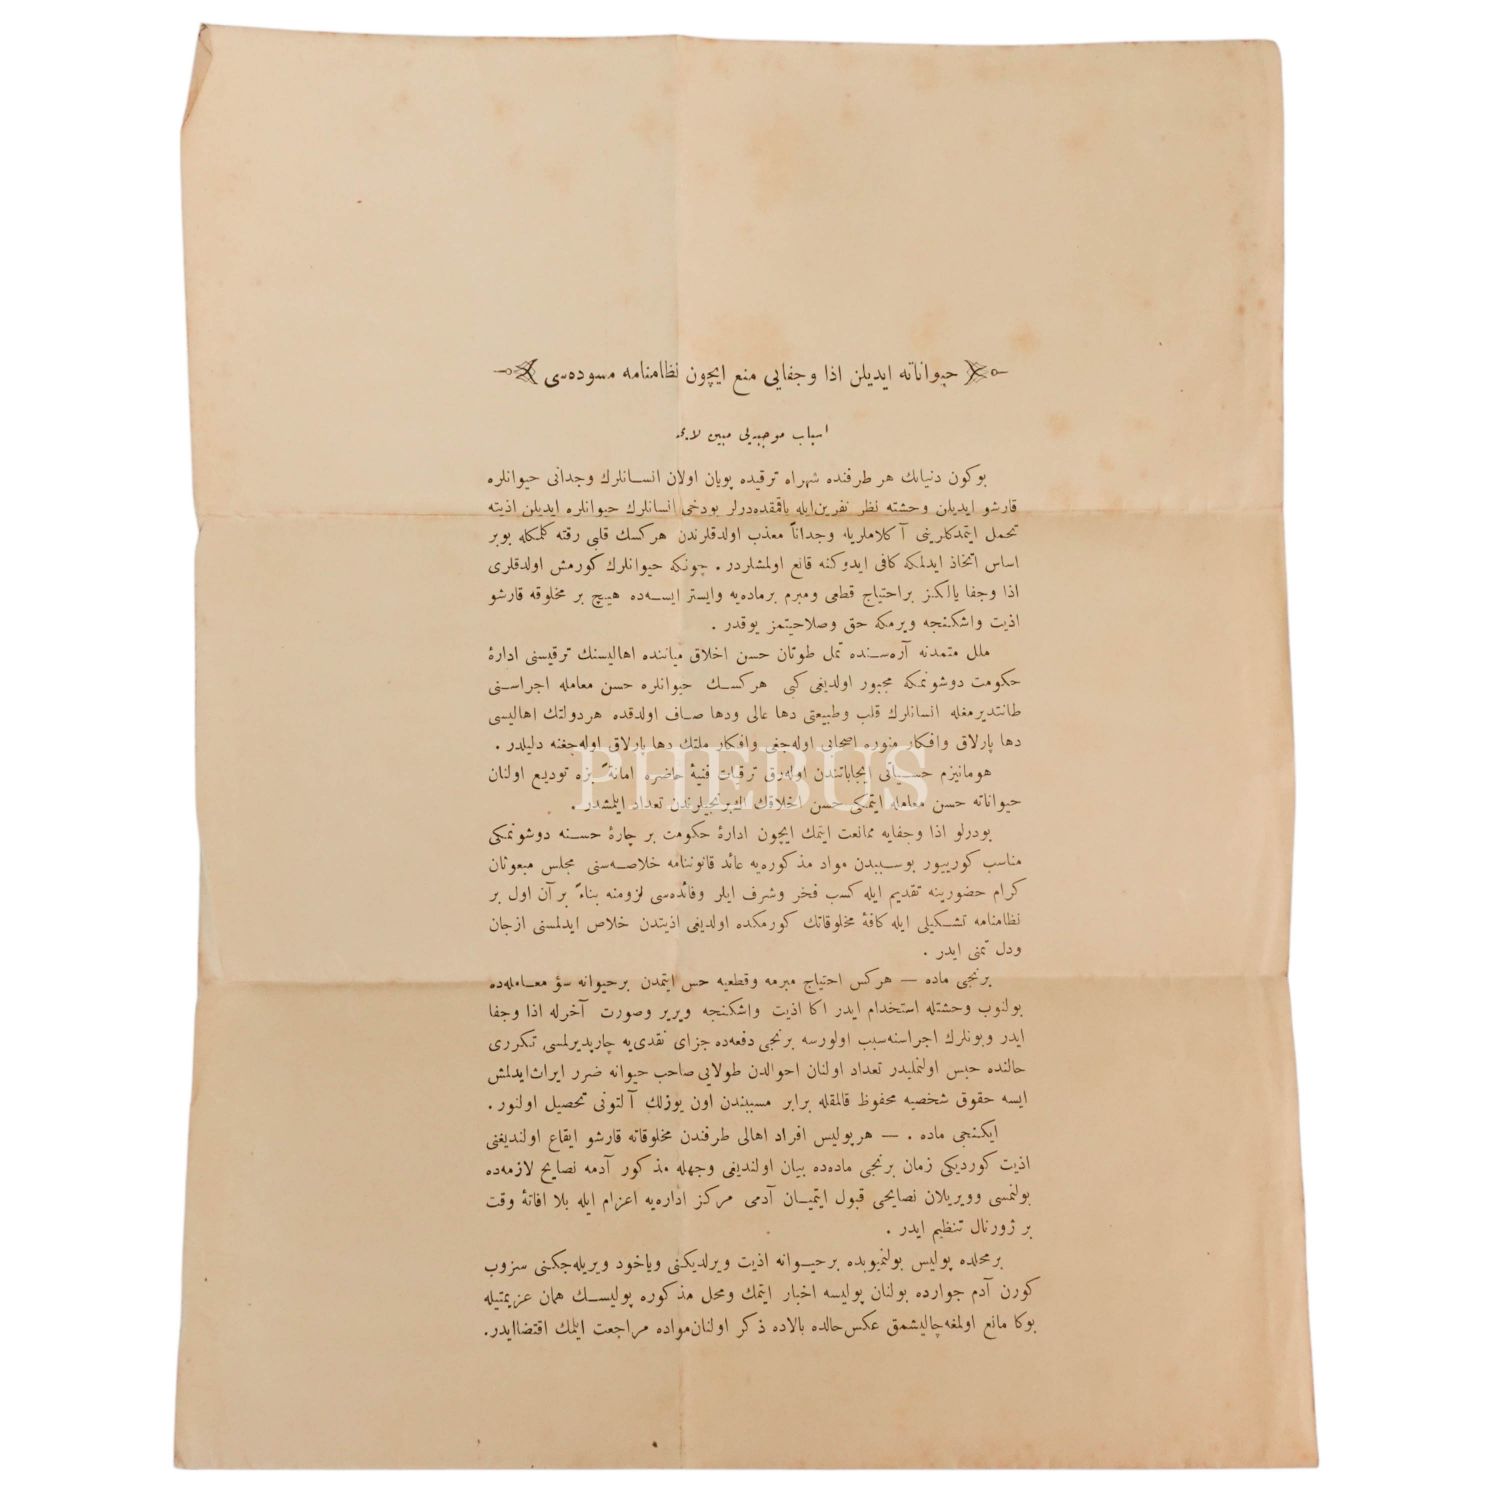 حيواناته ايديلن اذا وجفايى منع ايچون نظامنامه مسوده‌سى
اسباب موجبه‌يى مبين لايحه
بوكون دنيانك هر طرفنده شهراه ترقيده پويان اولان انسانلرك وجدانى حيوانلره
قارشو ايديلن وحشته نظر نفرين‌ايله باقمقده‌درلر بودخى انسانلرك حيوانلره ايديلن اذيته
تحمل ايتمدكلرينى آكلاملريله وجداناً معذب اولدقلرندن هركسك قلبى رقته كلمكله بوبر
اساس اتخاذ ايدلمكه كافى ايدوكنه قانع اولمشلردر . چونكه حيوانلرك كورمش اولدقلرى
اذا وجفا يالكز براحتياج قطعى ومبرم برماده‌يه وايستر ايسه‌ده هيچ بر مخلوقه قارشو
اذيت واشكنجه ويرمكه حق وصلاحيتمز يوقدر .
ملل متمدنه آره‌سنده تمل طوتان حسن اخلاق مياننده اهاليسنك ترقيسنى ادارۀ
حكومت دوشونمكه مجبور اولديغى كبى هركسك حيوانلره حسن معامله اجراسنى
طانتديرمغله انسانلرك قلب وطبيعتى دها عالى ودها صاف اولدقده هردولتك اهاليسى
دها پارلاق وافكار منوره اصحابى اوله‌جغى وافكار ملتك دها پارلاق اوله‌جغنه دليلدر .
هومانيزم حسياتى ايجاباتندن اوله‌رق ترقيات فنيۀ حاضره امانةً بزه توديع اولنان
حيواناته حسن معامله ايتمكى حسن اخلاقك اك‌برنجيلرندن تعداد ايلمشدر .
بودرلو اذا وجفايه ممانعت ايتمك ايچون ادارۀ حكومت بر چارۀ حسنه دوشونمكى
مناسب كورييور بوسببدن مواد مذكوره‌يه عائد قانوننامه خلاصه‌سنى مجلس مبعوثان
كرام حضورينه تقديم ايله كسب فخر وشرف ايلر وفائده‌سى لزومنه بناءً بر آن اول بر
نظامنامه تشكيلى ايله كافۀ مخلوقاتك كورمكده اولديغى اذيتدن خلاص ايدلمسنى ازجان
ودل تمنى ايدر .
برنجى ماده — هركس احتياج مبرمه وقطعيه حس ايتمدن برحيوانه سؤ معامله‌ده
بولنوب وحشتله استخدام ايدر اكا اذيت واشكنجه ويرير وصورت آخرله اذا وجفا
ايدر وبونلرك اجراسنه‌سبب اولورسه برنجى دفعه‌ده جزاى نقدى‌يه چارپديرلمسى تكررى
حالنده حبس اولنملیدر تعداد اولنان احوالدن طولايى صاحب حيوانه ضرر ايراث‌ايدلمش
ايسه حقوق شخصيه محفوظ قالمقله برابر مسببندن اون يوزلك آلتونى تحصيل اولنور .
ايكنجى ماده . — هرپوليس افراد اهالى طرفندن مخلوقاته قارشو ايقاع اولنديغنى
اذيت كورديكى زمان برنجى ماده‌ده بيان اولنديغى وجهله مذكور آدمه نصايح لازمه‌ده
بولنمسى وويريلان نصايحى قبول ايتميان آدمى مركز اداره‌يه اعزام ايله بلا افاتۀ وقت
بر ژورنال تنظيم ايدر .
برمحلده پوليس بولنميوبده برحيوانه اذيت ويرلديكنى وياخود ويريله‌جكنى سزوب
كورن آدم جوارده بولنان پوليسه اخبار ايتمك ومحل مذكوره پوليسك همان عزيمتيله
بوكا مانع اولمغه‌چاليشمق عكس‌حالده بالاده ذكر اولنان‌مواده مراجعت ايلمك اقتضاايدر.
PHEBUS